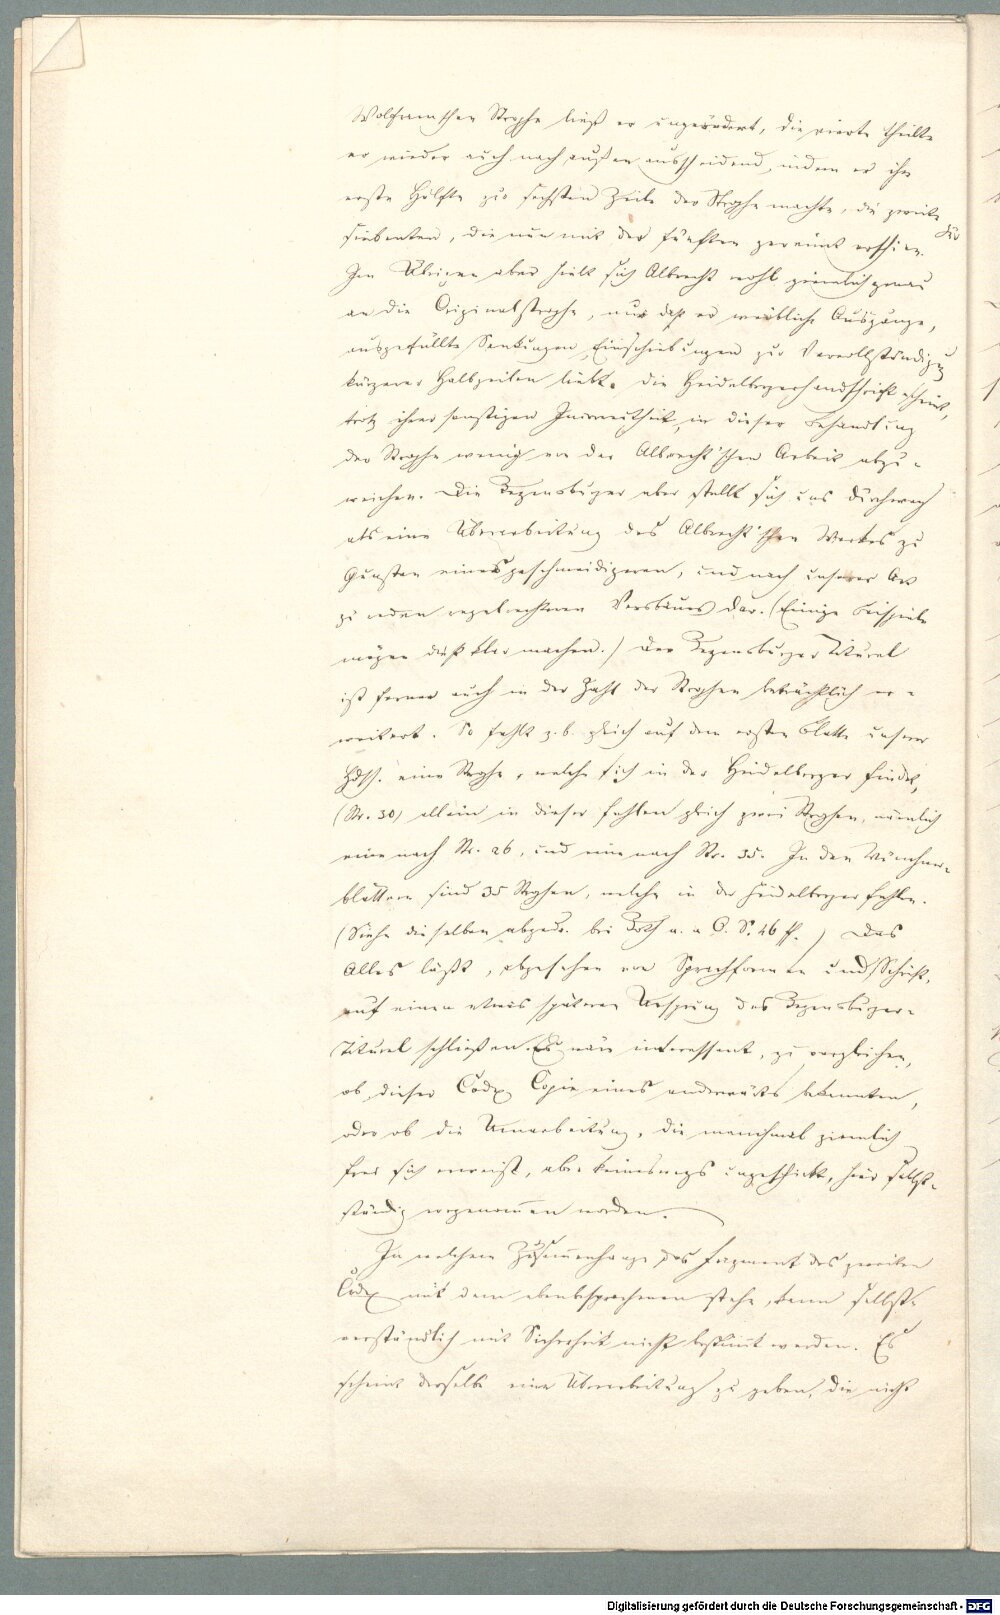 Wolframschen Strophe ließ er ungeändert, die vierte theilte
er wieder auch nach außen ausscheidend, indem er ihre
erste Hälfte zur sechsten Zeile der Strophe machte, die zweite zur
siebenten, die nun mit der fünften gereimt erschien.
Im Übrigen aber hielt sich Albrecht wohl ziemlich genau
an die Originalstrophe, nur daß er weibliche Ausgänge,
ausgefüllte Senkungen, Einschiebungen zur Vervollständigung
kürzerer Halbzeilen liebt. Die Heidelbergerhandschrift scheint,
trotz ihrer sonstigen Incorrectheit, in dieser Behandlung
der Strophe wenig von der Albrecht'schen Arbeit abzu-
weichen. Die Regensburger aber stellt sich uns durchweg
als eine Überarbeitung des Albrecht'schen Werkes zu
Gunsten eines geschmeidigeren, und nach unserer Art
zu reden regelrechteren Versbaues dar. (Einige Beispiele
mögen dieß klar machen.) Der Regensburger Titurel
ist ferner auch in der Zahl der Strophen beträchtlich er-
weitert. So fehlt z. b. gleich auf dem ersten Blatte unserer
Hdss. eine Strophe, welche sich in der Heidelberger findet,
(Str. 30) allein in dieser fehlen gleich zwei Strophen, nämlich
eine nach Str. 26, und eine nach Str. 35. In den Münchner-
blättern sind 35 Strophen, welche in der Heidelberger fehlen.
(Siehe dieselben abgedr. bei Roth a. a O. S. 46 ff.) Das
Alles läßt, abgesehen von Sprachformen und Schrift,
auf einen etwas späteren Ursprung des Regensburger-
Titurel schließen. Es wäre interessant, zu vergleichen,
ob dieser Codex Copie eines anderwärts bekannten,
oder ob die Umarbeitung, die manchmal ziemlich
frei sich erweist, aber keineswegs ungeschickt, hier selbst-
ständig vorgenommen worden.
In welchem Zusammenhange das Fragment des zweiten
Codex mit dem ebenbesprochenen stehe, kann selbst-
verständlich mit Sicherheit nicht bestimmt werden. Es
scheint derselbe eine Überarbeitung zu geben, die nicht
Digitalisierung gefördert durch die Deutsche Forschungsgemeinschaft - DFG